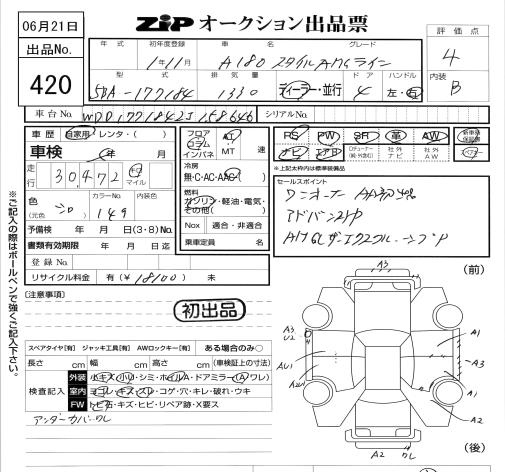 06月21日
ZiP オークション出品票
出品No.
420
年式 初年度登録 車名 グレード
1年11月 A180 スタイル AMGライン
評価点
4
型式 排気量 ドア ハンドル
5BA-177184 1330 ディーラー・並行 4 左・右
内装
B
車台No. WDD1771842J158646 シリアルNo.
車歴 自家用・レンタ・( )
車検 年 月
走行 30,472 キロ マイル
色 (元色) シロ カラーNo. 149 内装色
予備検 年 月 日(3・8)No.
書類有効期限 年 月 日迄
登録No.
リサイクル料金 有(¥18100) 未
フロア コラム インパネ AT MT 速
冷房
無・C・AC・AAC
燃料
ガソリン・軽油・電気・その他( )
Nox 適合・非適合
乗車定員 名
PS PW SR 革 AW 新車時保証書
ナビ エアB 社外ナビ 社外AW
※上記太枠内は標準装備品
セールスポイント
ワンオーナー
アドバンスドP
(前)
※ご記入の際はボールペンで強くご記入下さい。
[注意事項]
初出品
スペアタイヤ[有] ジャッキ工具[有] AWロックキー[有] ある場合のみ○
長さ cm 幅 cm 高さ cm (車検証上の寸法)
検査記入
外装 小キズ・小凹・シミ・ホイルA・ドアミラー(A・ワレ)
室内 ヨゴレ・キズ・スレ・コゲ・穴・キレ・破れ・ウキ
FW トビ石・キズ・ヒビ・リペア跡・X要ス
アンダーカバーワレ
A3
A3
U2
A1
A3
AU1
A1
A2
A2 ワレ
(後)